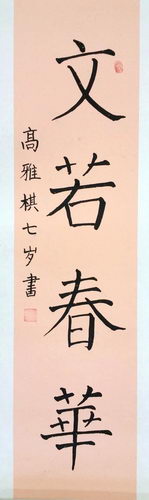 文若春華
高雅棋七岁書